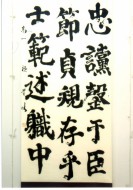 忠讜罄于臣
節貞規存乎
士範述職中